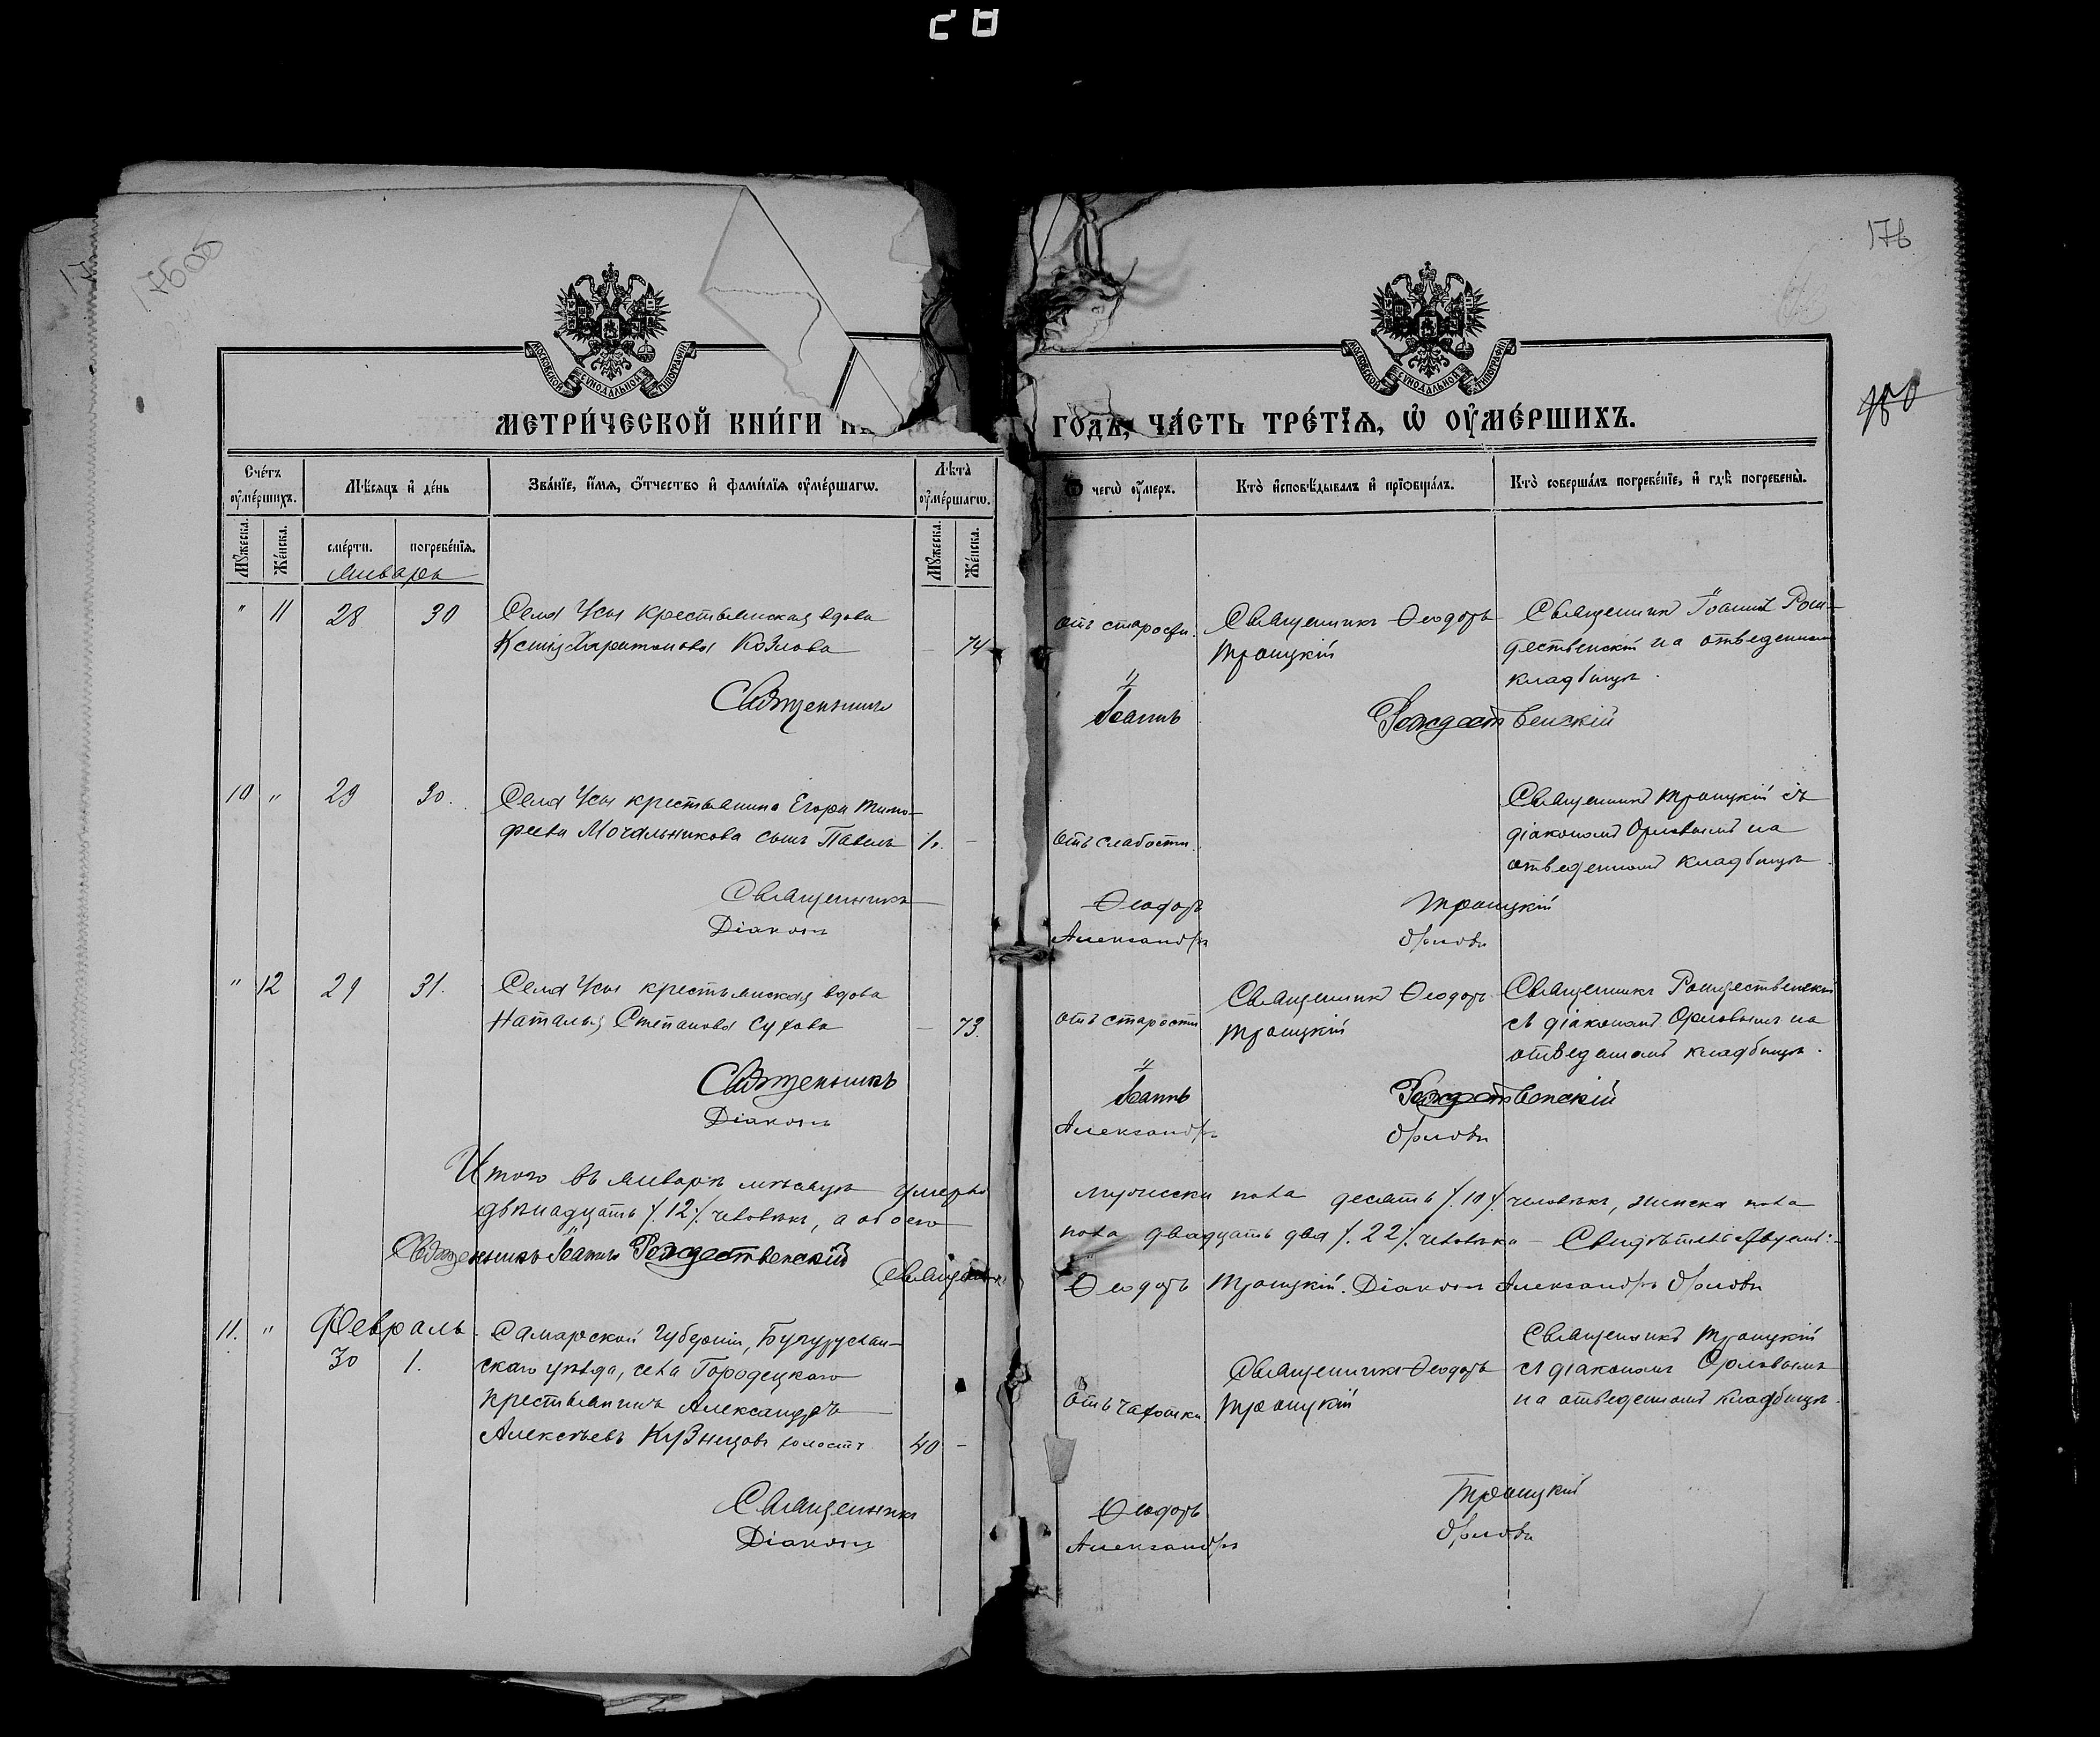 28
175об
176
МОСКОВСКОЙ СѴНОДАЛЬНОЙ ТИПОГРАФІИ
МОСКОВСКОЙ СѴНОДАЛЬНОЙ ТИПОГРАФІИ
МЕТРИ́ЧЕСКОЙ КНИ́ГИ ГОДЪ, ЧА́СТЬ ТРЕ́ТІѦ, Ѡ ОУМЕ́РШИХЪ.
Сче́тъ оумершихъ.
Мѣсяцъ и де́нь
Зва́нїе, и́мѧ, о́тчество и фами́лїѧ оуме́ршагѡ.
Лѣта̀ оуме́ршагѡ.
Ѿ чегѡ̀ оу́меръ.
Кто̀ исповѣ́дывалъ и прїѡбща́лъ.
Кто̀ соверша́лъ погребе́нїе, и гдѣ̀ погребены̀.
Мꙋжеска. Же́нска.
сме́рти. погребе́нїѧ.
Мꙋжеска. Же́нска.
Январь
" 11 28 30 Села Усы крестьянская вдова
Ксенія Харитонова Козлова - 74
отъ старости.
Священникъ Ѳеодоръ
Троицкій
Священникъ Іоаннъ Рож-
дественскій на отведенномъ
кладбищѣ.
Священникъ Іоаннъ Рождественскій
10 " 29 30. Села Усы крестьянина Егора Тимо-
феева Мочальникова сынъ Павелъ 1. -
отъ слабости.
Священникъ Троицкій съ
діакономъ Орловымъ на
отведенномъ кладбищѣ.
Священникъ Ѳеодоръ Троицкій
Діаконъ Александръ Орловъ
" 12 29 31. Села Усы крестьянская вдова
Наталья Степанова Сухова - 73.
отъ старости
Священникъ Ѳеодоръ
Троицкій
Священникъ Рождественскій
съ діакономъ Орловымъ на
отведенномъ кладбищѣ.
Священникъ Іоаннъ Рождественскій
Діаконъ Александръ Орловъ
Итого въ Январѣ мѣсяцѣ умерло мужеска пола десять /.10/. человѣкъ, женска пола
двѣнадцать /.12/. человѣкъ, а обоего пола двадцать два /.22/. человѣка - Свидѣтельствуемъ:-
Священникъ Іоаннъ Рождественскій
Священникъ Ѳеодоръ Троицкій. Діаконъ Александръ Орловъ
Февраль
11. " 30 1. Самарской губерніи, Бугуруслан-
скаго уѣзда, села Городецкаго
крестьянинъ Александръ
Алексѣевъ Кузнецовъ холостъ 40 -
отъ чахотки.
Священникъ Ѳеодоръ
Троицкій
Священникъ Троицкій
съ діакономъ Орловымъ
на отведенномъ кладбищѣ.
Священникъ Ѳеодоръ Троицкій
Діаконъ Александръ Орловъ